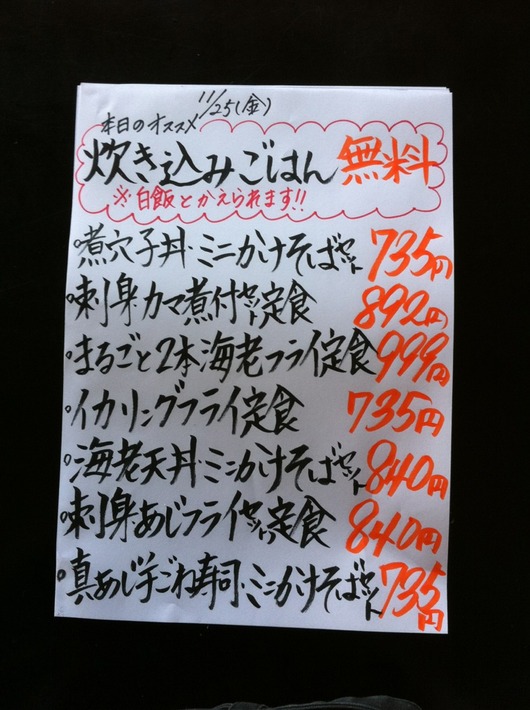 11/25(金)
本日のオススメ
炊き込みごはん 無料
※白飯とかえられます!!
・煮穴子丼・ミニかけそばセット 735円
・刺身カマ煮付セット定食 892円
・まるごと2本海老フライ定食 999円
・イカリングフライ定食 735円
・海老天丼・ミニかけそばセット 840円
・刺身あじフライセット定食 840円
・真あじ手ごね寿司・ミニかけそばセット 735円